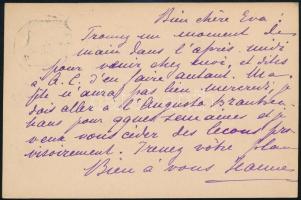 Bien chère Eva!
Trouvez un moment de-
main dans l'après midi
pour venir chez moi, et dites
à A. C. d'en faire autant. Ma
fête n'aura pas lieu mercredi, je
dois aller à l'Augusta Kranken-
haus pour qques semaines et je
veux vous céder des leçons pro-
visoirement. Prenez vôtre plan
Bien à vous Jeanne